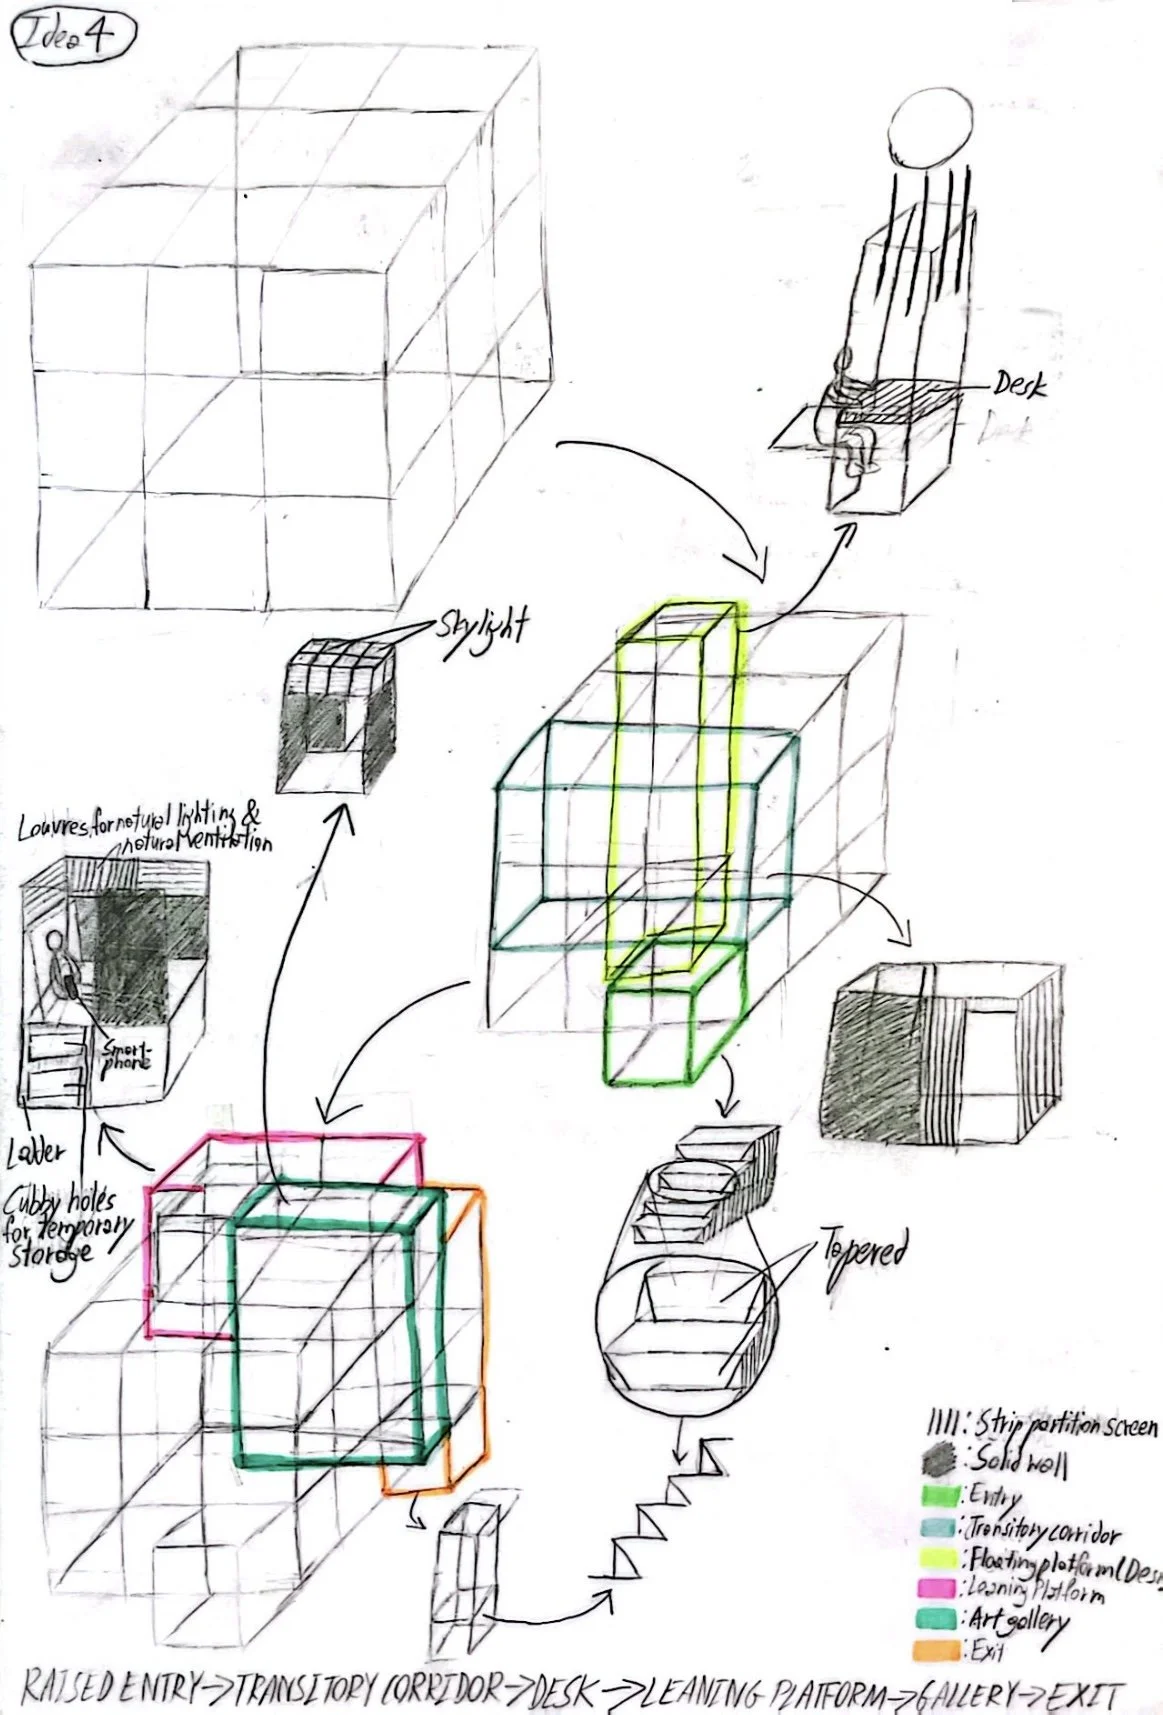 Idea 4
Desk
Skylight
Louvres for natural lighting &
natural ventilation
Smart-
phone
Ladder
Cubby holes
for temporary
storage
Tapered
||||: Strip partition screen
: Solid wall
: Entry
: Transitory corridor
: Floating platform (Desk
: Leaning Platform
: Art gallery
: Exit
RAISED ENTRY->TRANSITORY CORRIDOR->DESK->LEANING PLATFORM->GALLERY->EXIT